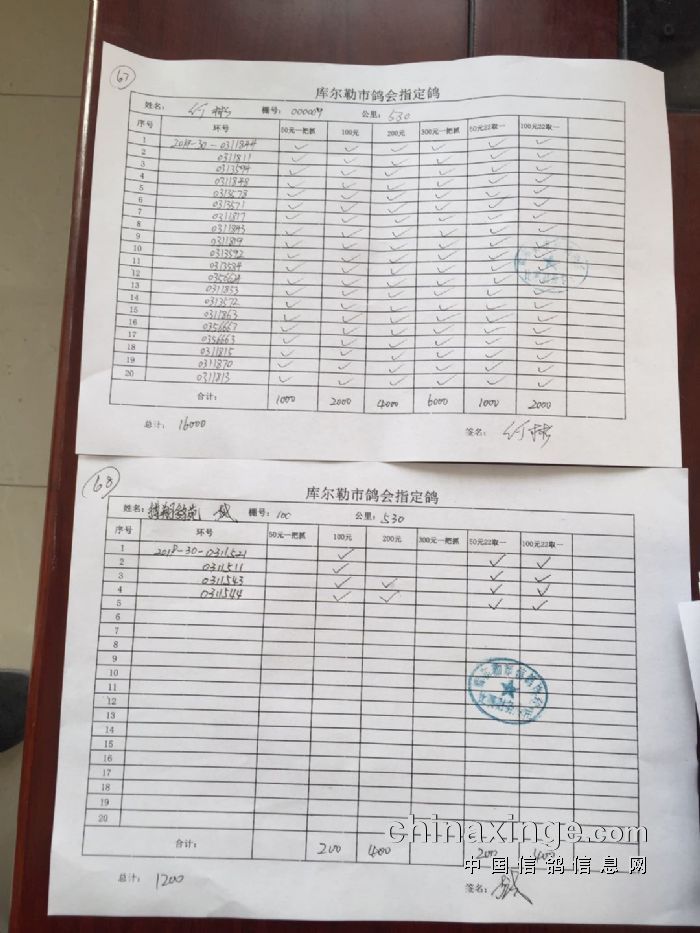 67
库尔勒市鸽会指定鸽
姓名： 棚号：000009 公里：530
序号 环号 50元一把抓 100元 200元 300元一把抓 50元22取一 100元22取一
1 2018-30-0311844 ✓ ✓ ✓ ✓ ✓ ✓
2 0311811 ✓ ✓ ✓ ✓ ✓ ✓
3 0313594 ✓ ✓ ✓ ✓ ✓ ✓
4 0311848 ✓ ✓ ✓ ✓ ✓ ✓
5 0313578 ✓ ✓ ✓ ✓ ✓ ✓
6 0313571 ✓ ✓ ✓ ✓ ✓ ✓
7 0311817 ✓ ✓ ✓ ✓ ✓ ✓
8 0311843 ✓ ✓ ✓ ✓ ✓ ✓
9 0311819 ✓ ✓ ✓ ✓ ✓ ✓
10 0313592 ✓ ✓ ✓ ✓ ✓ ✓
11 0313584 ✓ ✓ ✓ ✓ ✓ ✓
12 ✓ ✓ ✓ ✓ ✓ ✓
13 0311853 ✓ ✓ ✓ ✓ ✓ ✓
14 0313572 ✓ ✓ ✓ ✓ ✓ ✓
15 0311863 ✓ ✓ ✓ ✓ ✓ ✓
16 0356667 ✓ ✓ ✓ ✓ ✓ ✓
17 0356663 ✓ ✓ ✓ ✓ ✓ ✓
18 0311815 ✓ ✓ ✓ ✓ ✓ ✓
19 0311870 ✓ ✓ ✓ ✓ ✓ ✓
20 0311813 ✓ ✓ ✓ ✓ ✓ ✓
合计： 1000 2000 4000 6000 1000 2000
总计： 16000 签名：
68
库尔勒市鸽会指定鸽
姓名： 棚号：100 公里：530
序号 环号 50元一把抓 100元 200元 300元一把抓 50元22取一 100元22取一
1 2018-30-0311521 ✓ ✓ ✓
2 0311511 ✓ ✓ ✓
3 0311543 ✓ ✓ ✓ ✓
4 0311544 ✓ ✓ ✓ ✓
5
6
7
8
9
10
11
12
13
14
15
16
17
18
19
20
合计： 200 400 200 400
总计： 1200 签名：
chinaxinge.com
中国信鸽信息网